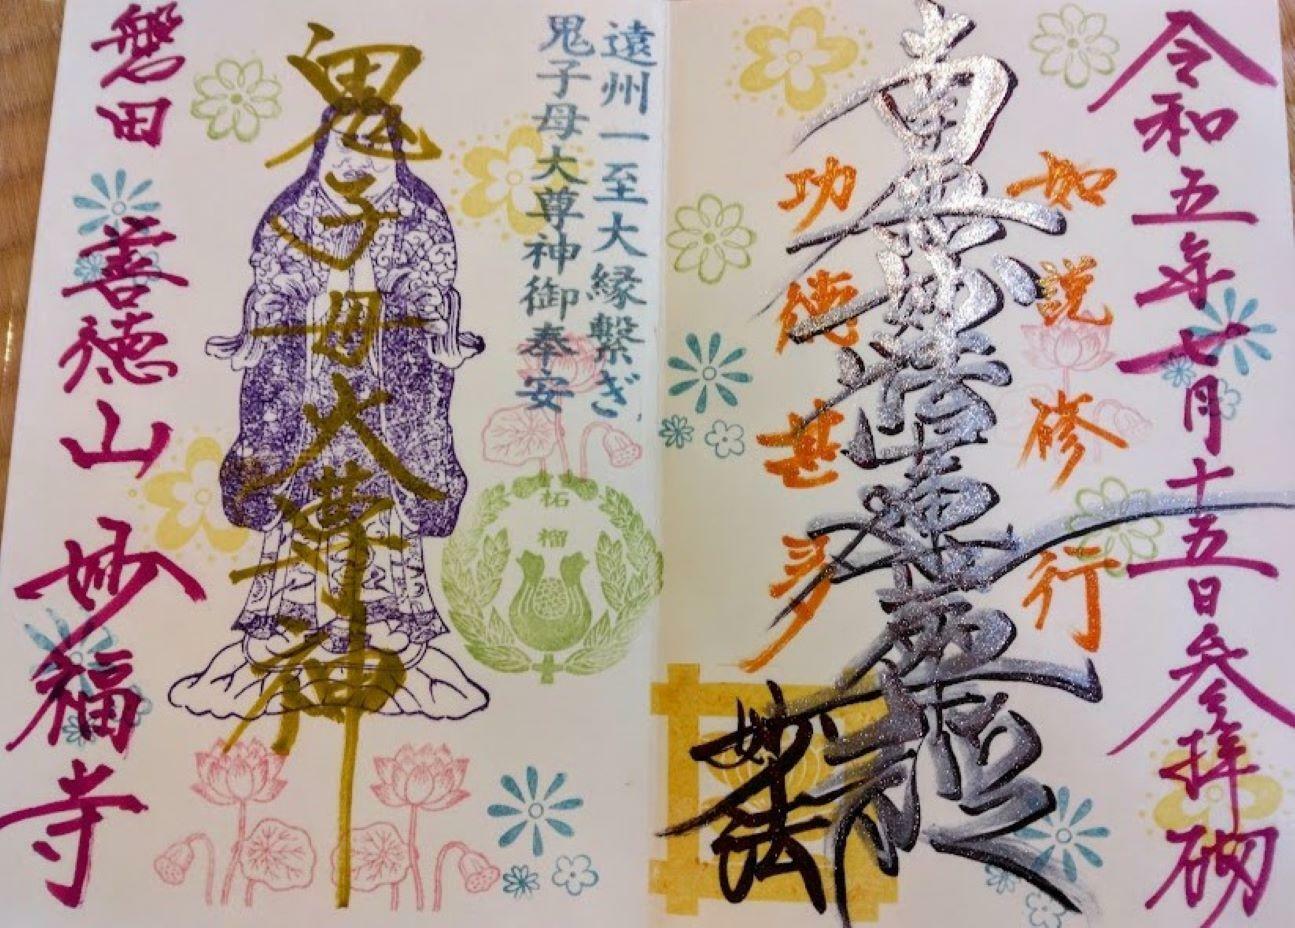 令和五年七月十五日参拝砌
如説修行
南無妙法蓮華經
功徳甚多
妙法
遠州一至大縁繋ぎ
鬼子母大尊神御奉安
柘榴
鬼子母大尊神
磐田 善徳山 妙福寺